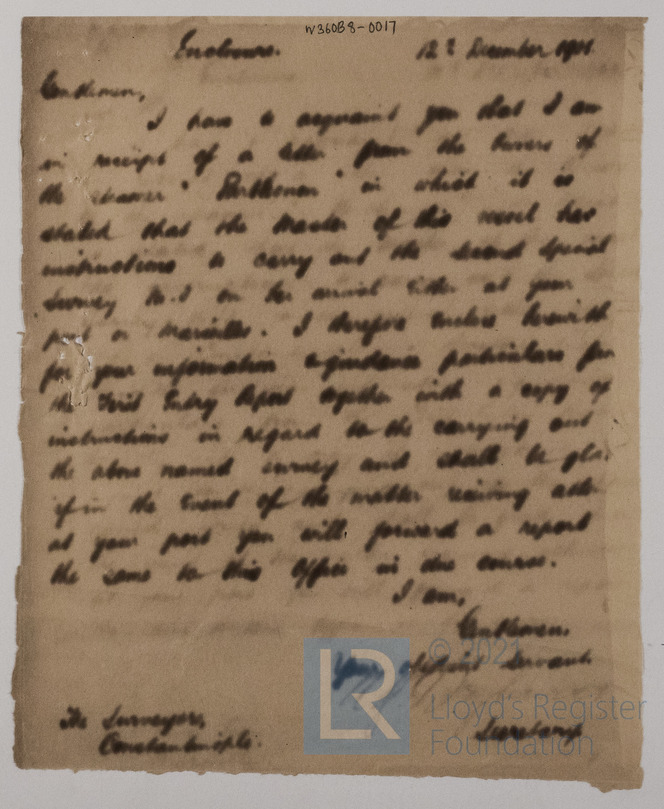 W360B8-0017
Enclosure. 12th December 1901.
Gentlemen,
I have to acquaint you that I am
in receipt of a letter from the Owners of
the steamer "Parthenon" in which it is
stated that the Master of this vessel has
instructions to carry out the Second Special
Survey No.1 on her arrival either at your
port or Marseilles. I therefore enclose herewith
for your information & guidance particulars from
the First Entry Report together with a copy of
instructions in regard to the carrying out
the above named survey and shall be
if in the event of the matter receiving
at your port you will forward a report
the same to this Office in due course.
I am,
Gentlemen,
Your obedient Servant.
The Surveyors, Secretary
Constantinople.
© 2021
LR
Lloyd's Register
Foundation